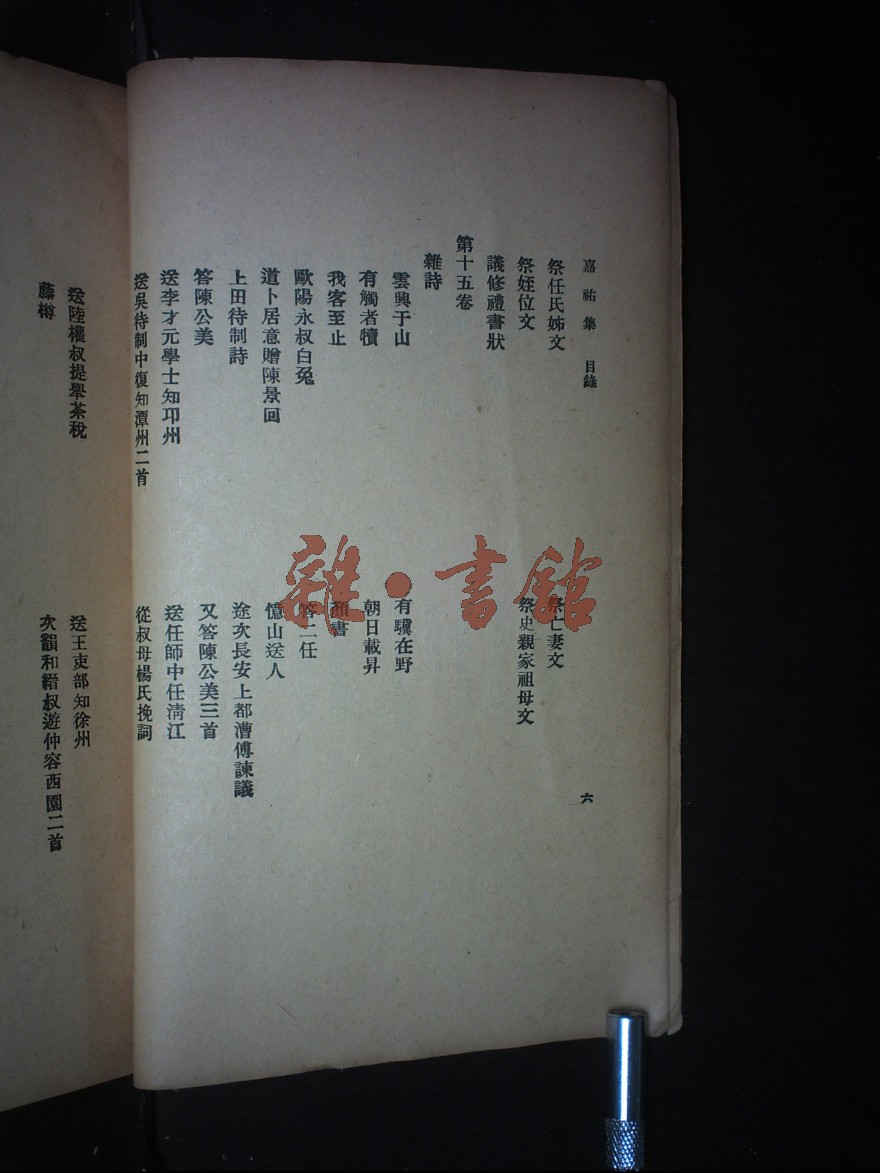 嘉祐集 目錄 六
祭任氏姊文 祭亡妻文
祭姪位文 祭史親家祖母文
議修禮書狀
第十五卷
雜詩
雲興于山 有驥在野
有觸者犢 朝日載昇
我客至止 顏書
歐陽永叔白兔 答二任
道卜居意贈陳景回 憶山送人
上田待制詩 途次長安上都漕傅諫議
答陳公美 又答陳公美三首
送李才元學士知邛州 送任師中任清江
送吳待制中復知潭州二首 從叔母楊氏挽詞
送陸權叔提舉茶稅 送王吏部知徐州
藤樽 次韻和縉叔遊仲容西園二首
雜·書館